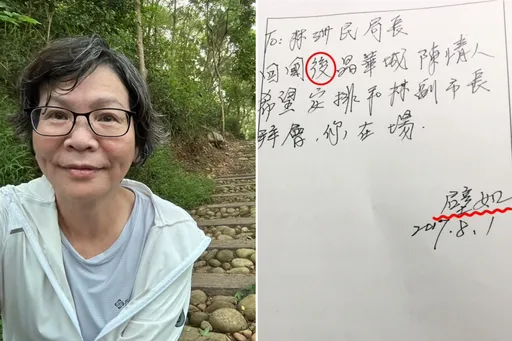 To: 林洲民局長
回國後晶華城陳情人
希望安排和林副市長
拜會,你在場.
壁如
2017.8.1